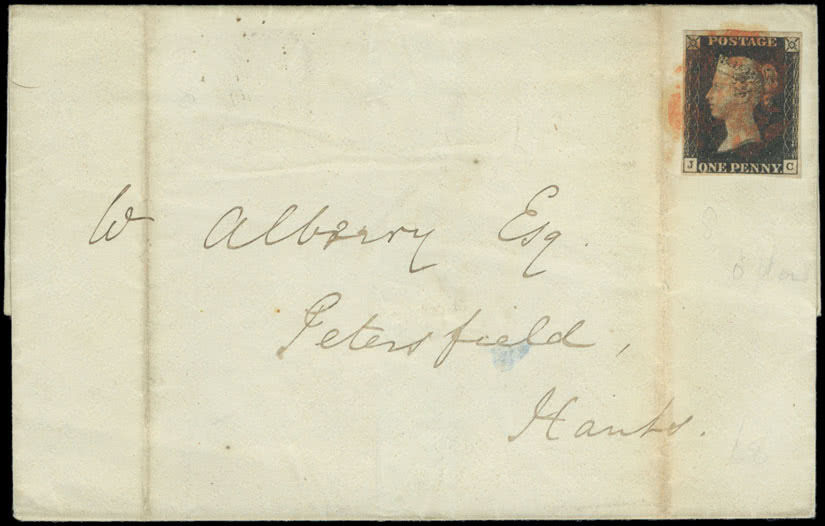 POSTAGE
J C
ONE PENNY.
W Albery Esq.
Petersfield,
Hants.